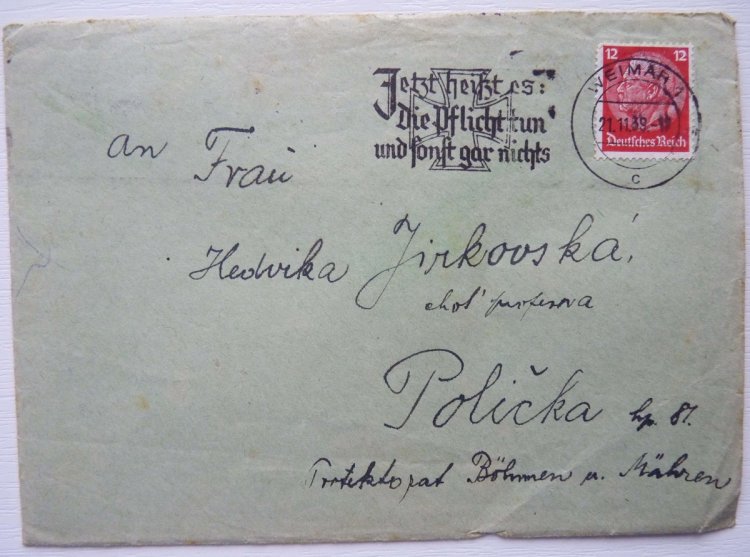 12 12
Jetzt heißt es:
Die Pflicht tun
und sonst gar nichts
WEIMAR 1
21.11.39.-
Deutsches Reich
c
an Frau
Hedvika Jirkovská,
choť profesora
Polička
čp. 81.
Protektorat Böhmen u. Mähren